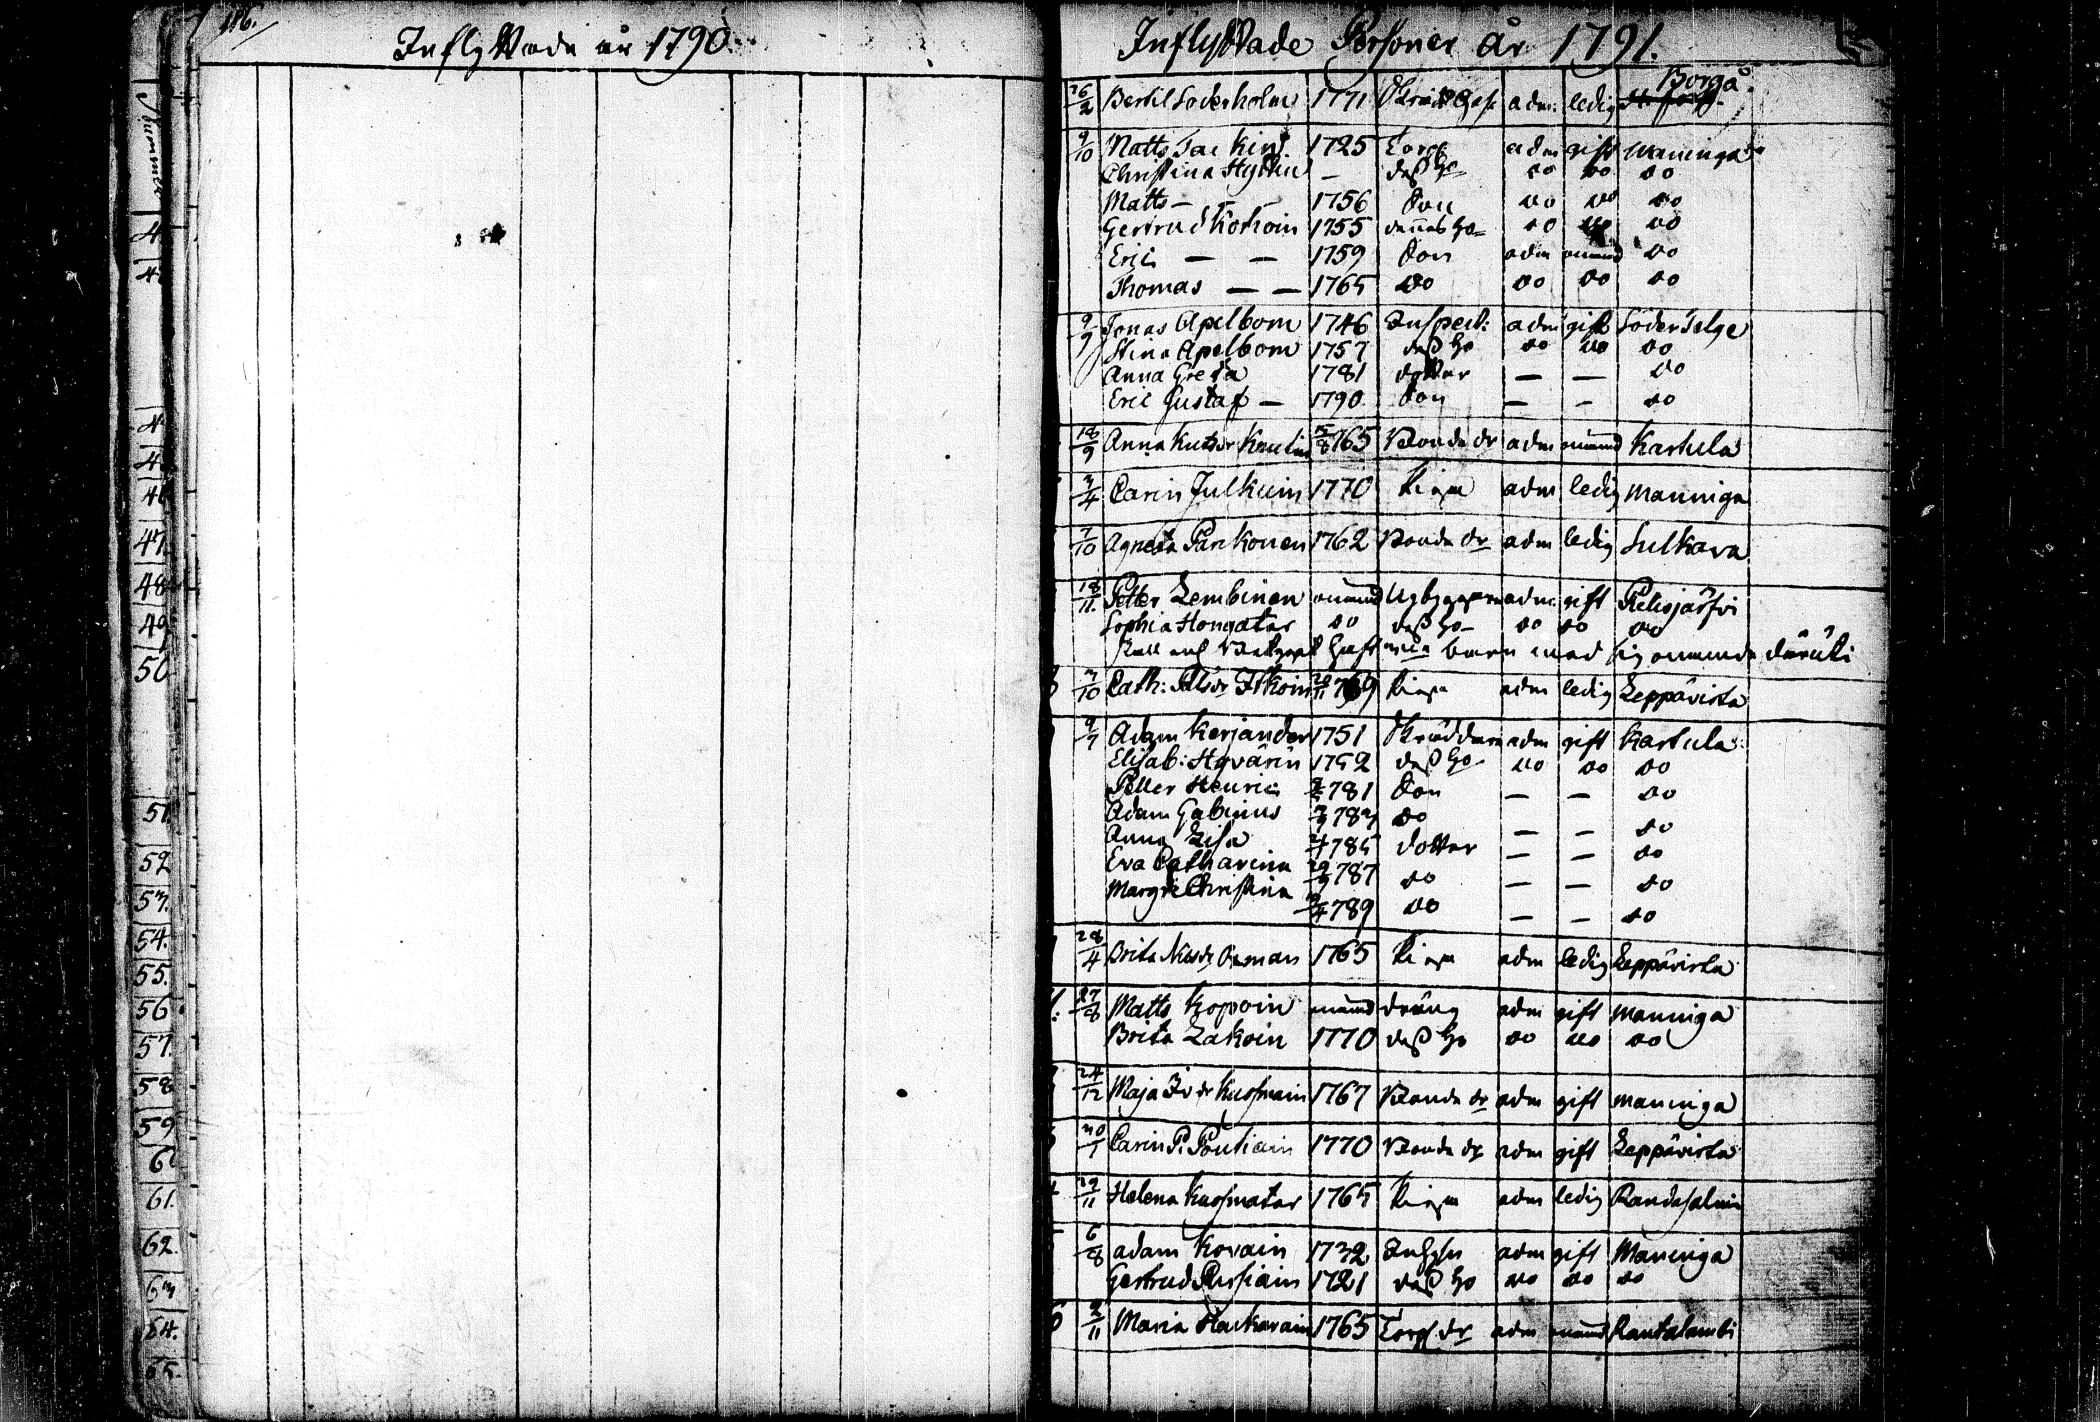 116.
Inflyttade år 1790.
Inflyttade Personer år 1791.
Borgå
26/2 Bertil Söderholm 1771 adm: ledig
9/10 Matts 1725 Torp adm gift Maninga
Christina Hyttin — dess Ho do do do
Matts — — 1756 Son do do do
Gertrud Kokoin 1755 dennes Ho do do do
Eric — — 1759 Son adm onämd do
Thomas — — 1765 do do do do
9/9 Jonas Apelbom 1746 Inspect: adm gift Södertelge
Stina Apelbom 1757 dess Ho do do do
Anna Greta 1781 dotter — — do
Eric Gustaf — 1790 Son — — do
18/9 Anna 765 Bonde dr adm onämd Kartula
3/4 Carin Julkuin 1770 Piga adm ledig Maninga
7/10 Agneta Parkonen 1762 Bonde dr adm ledig Sulkava
18/11. Petter Lembinen onämd Nybyggare adm: gift Pielisjärfvi
Sophia Hongatar do dess Ho do do do
barn med sig onämnde däruti
7/10 Cath: Itkoin 769 Piga adm ledig Leppävirta
9/7 Adam Kerjander 1751 Skräddare adm gift Kartula
Elisab: Hyvärin 1752 dess Ho do do do
Petter Henric 781 Son — — do
Adam Gabinus 783 do — — do
Anna Lisa 785 dotter — — do
Eva Catharina 787 do — — do
Margr: Christina 789 do — — do
28/4 Brita Nilsdr 1765 Piga adm ledig Leppävirta
27/8 Matts Kopoin onämd dräng adm gift Maninga
Brita Lakoin 1770 dess Ho do do do
24/12 Maja Kuosmain 1767 Bonde dr adm gift Maninga
30/1 Carin P. Poutiain 1770 Bonde dr adm gift Leppävirta
29/11 Helena Kuosmatar 1765 Piga adm ledig Randasalmi
6/8 Adam Kovain 1732 Inhys adm gift Maninga
Gertrud 1721 dess Ho do do do
2/11 Maria Hackarain 1765 Torp dr adm onämd Rautalambi
46
47.
48
49
50
51.
52
53.
54.
55.
56
57.
58
59
60
61.
62.
63
64.
65.